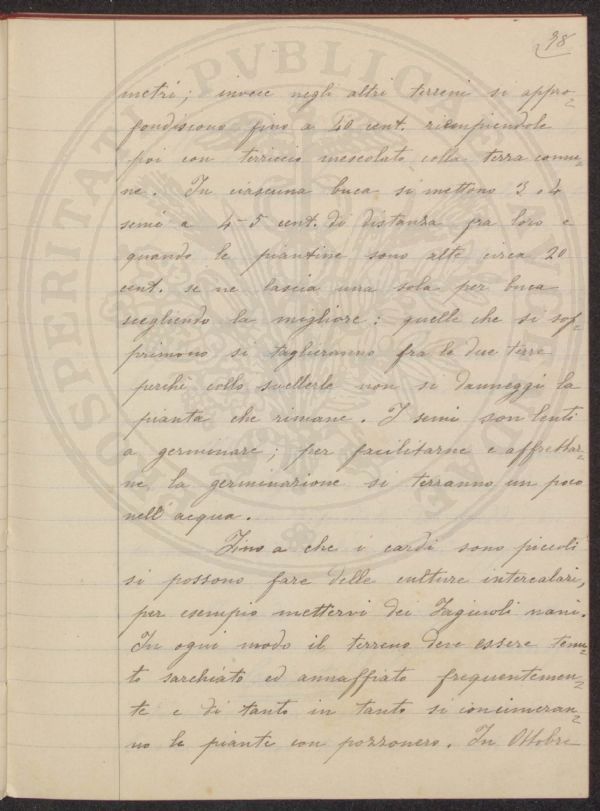 38
metri; invece negli altri terreni si appro-
fondiscono fino a 40 cent. riempiendole
poi con terriccio mescolato colla terra comu-
ne. In ciascuna buca si mettono 3 o 4
semi a 4-5 cent. di distanza fra loro e
quando le piantine sono alte circa 20
cent. se ne lascia una sola per buca
scegliendo la migliore: quelle che si sop-
primono si taglieranno fra le due terre
perchè collo svellerle non si danneggi la
pianta che rimane. I semi son lenti
a germinare; per facilitarne e affrettar-
ne la germinazione si terranno un poco
nell'acqua.
Fino a che i cardi sono piccoli
si possono fare delle culture intercalari,
per esempio mettervi dei Fagiuoli nani.
In ogni modo il terreno deve essere tenu-
to sarchiato ed annaffiato frequentemen-
te e di tanto in tanto si concimeran-
no le piante con pozzonero. In Ottobre
PROSPERITATI PVBLICAE AVGENDAE